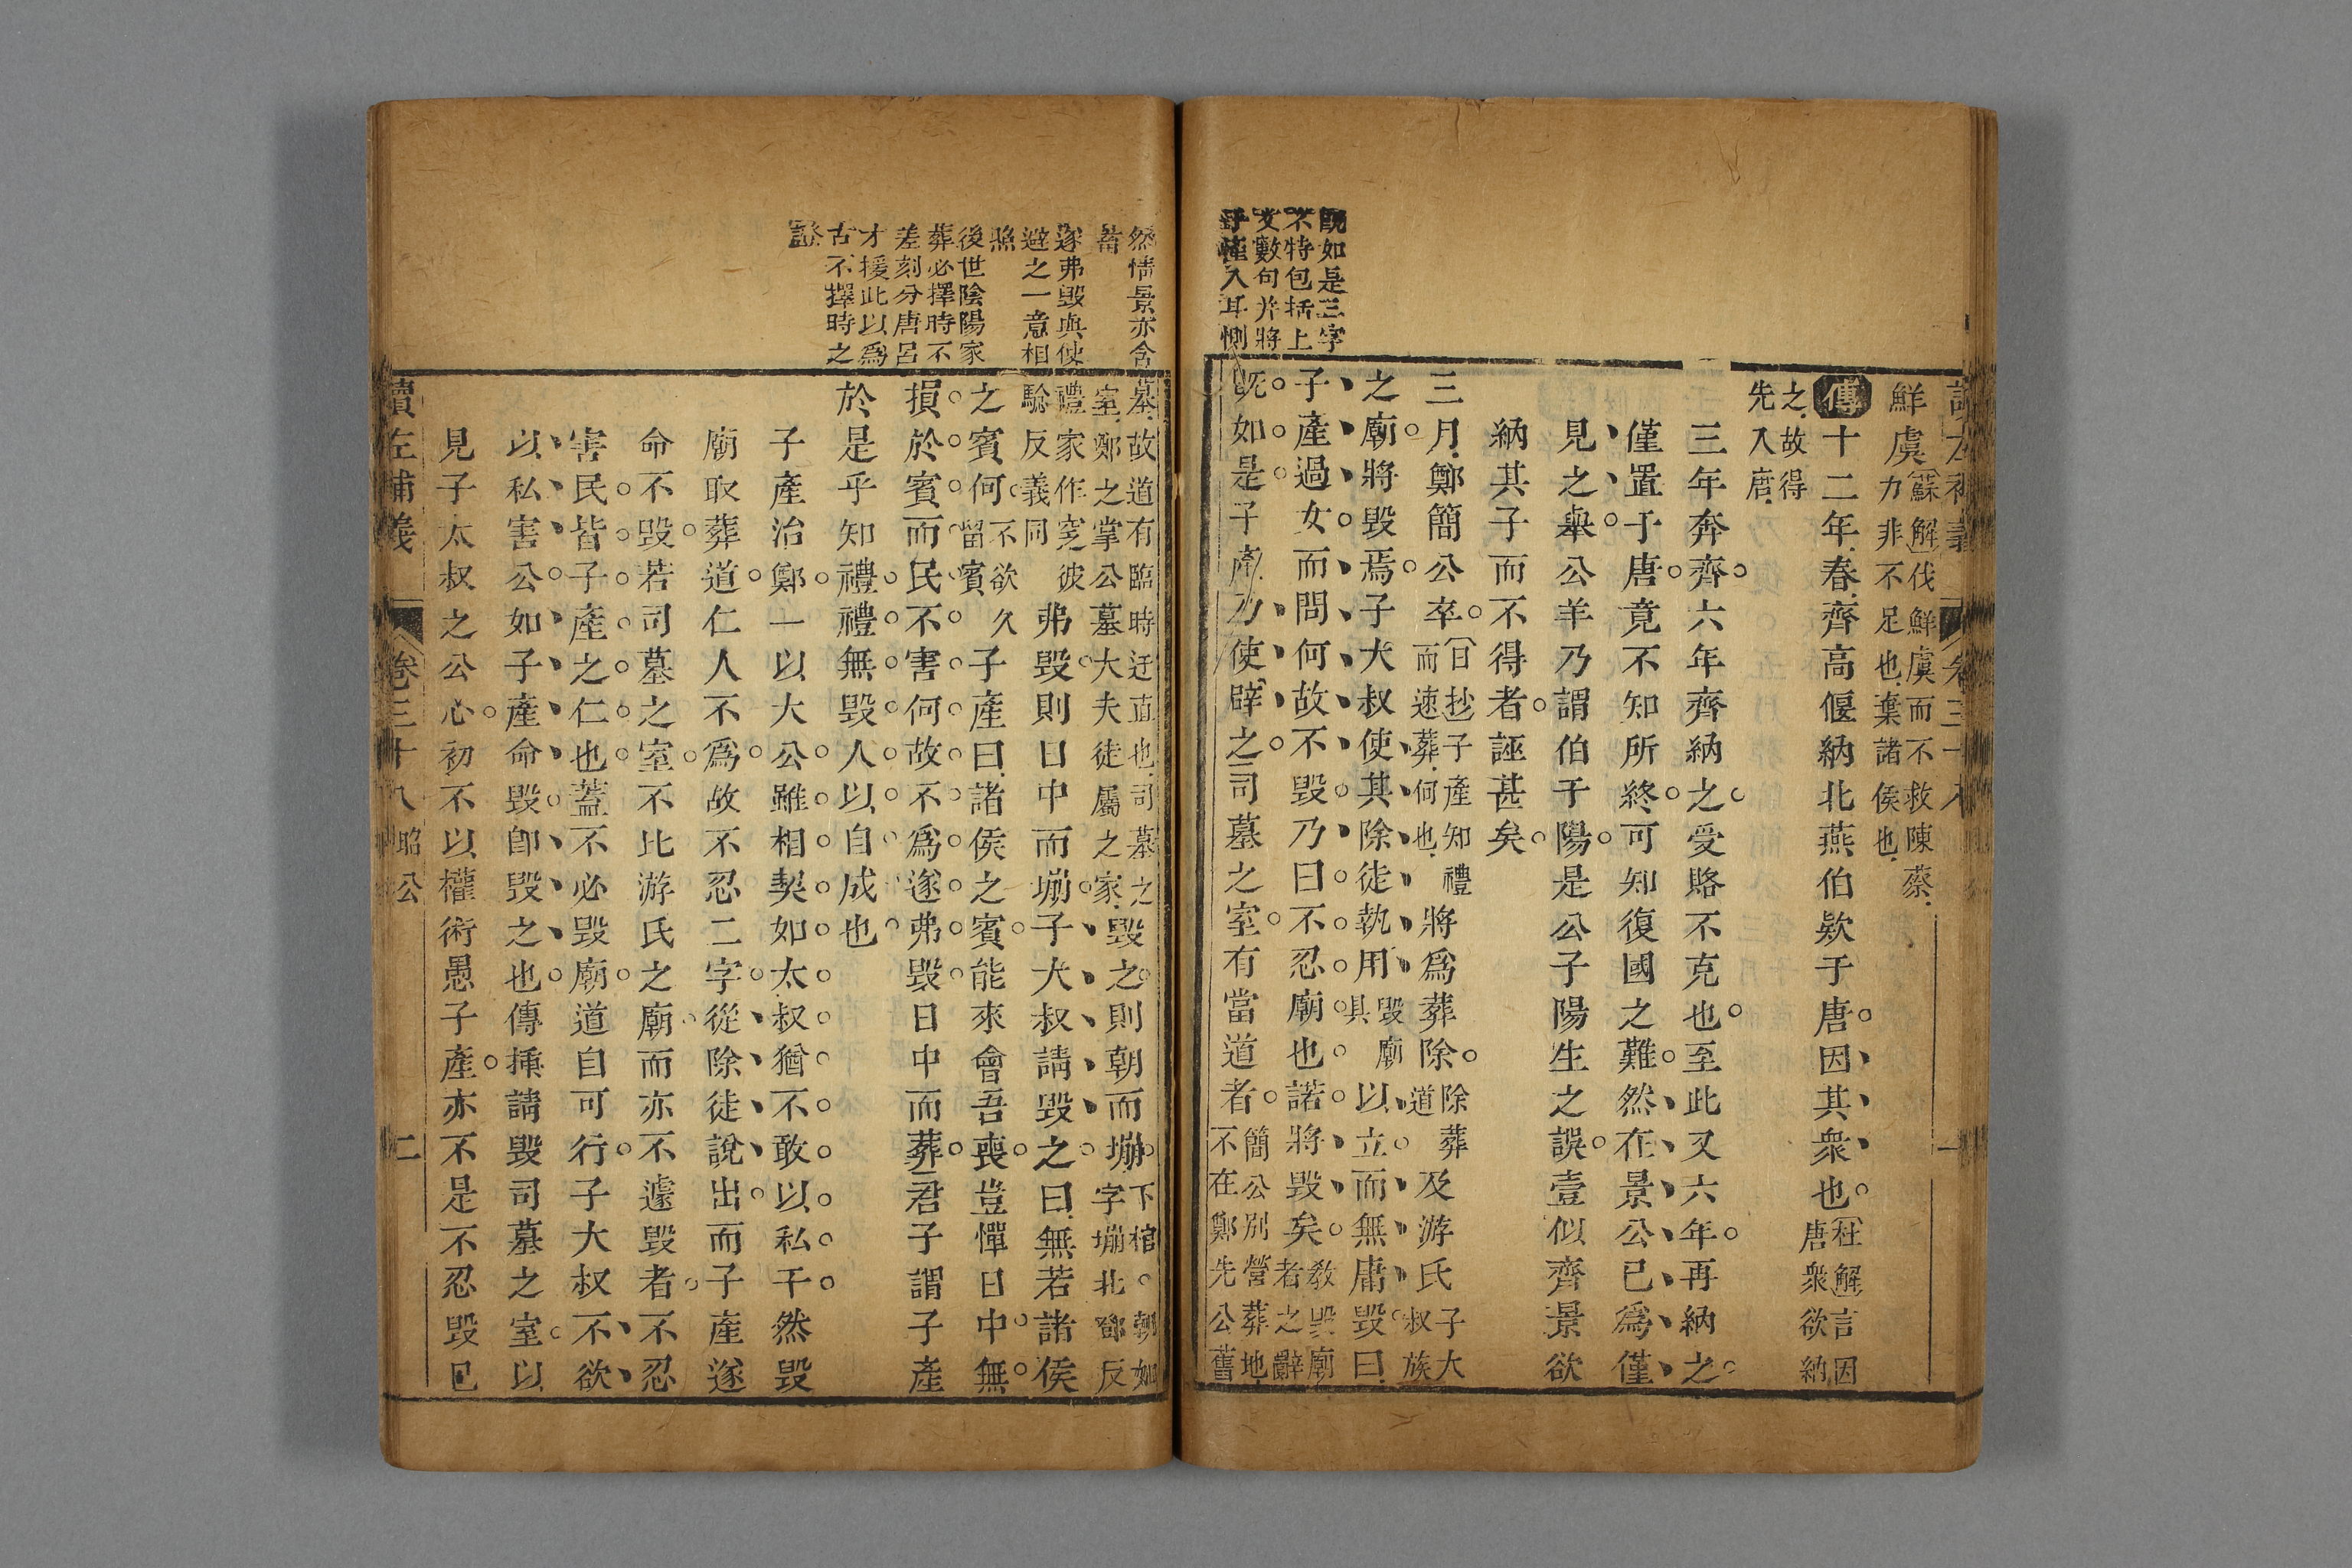 既如是三字
不特包括上
文數句并將
入耳惻
鮮虞蘇解伐鮮虞而不救陳蔡
力非不足也棄諸侯也
傳十二年春齊高偃納北燕伯款于唐因其衆也杜解言因
唐衆欲納
之故得
先入唐
三年奔齊六年齊納之受賂不克也至此又六年再納之
僅置于唐竟不知所終可知復國之難然在景公已爲僅
見之舉公羊乃謂伯于陽是公子陽生之誤壹似齊景欲
納其子而不得者誣甚矣
三月鄭簡公卒日抄子產知禮
而速葬何也將爲葬除除葬
道及游氏子大
叔族
之廟將毀焉子大叔使其除徒執用毀廟
具以立而無庸毀曰
子產過女而問何故不毀乃曰不忍廟也諾將毀矣教毀廟
者之辭
既如是子產乃使辟之司墓之室有當道者簡公別營葬地
不在鄭先公舊
然情景亦含
蓄
遂弗毀與使
避之一意相
照
後世陰陽家
葬必擇時不
差刻分唐呂
才援此以爲
古不擇時之
證
墓故道有臨時迂直也司墓之
室鄭之掌公墓大夫徒屬之家毀之則朝而塴下棺。朝如
字塴北鄧反
禮家作窆彼
驗反義同弗毀則日中而塴子大叔請毀之曰無若諸侯
之賓何不欲久
留賓子產曰諸侯之賓能來會吾喪豈憚日中無
損於賓而民不害何故不爲遂弗毀日中而葬君子謂子產
於是乎知禮禮無毀人以自成也
子產治鄭一以大公雖相契如太叔猶不敢以私干然毀
廟取葬道仁人不爲故不忍二字從除徒說出而子產遂
命不毀若司墓之室不比游氏之廟而亦不遽毀者不忍
害民皆子產之仁也蓋不必毀廟道自可行子大叔不欲
以私害公如子產命毀卽毀之也傳插請毀司墓之室以
見子太叔之公心初不以權術愚子產亦不是不忍毀已
讀左補義 卷三十八 昭公 二